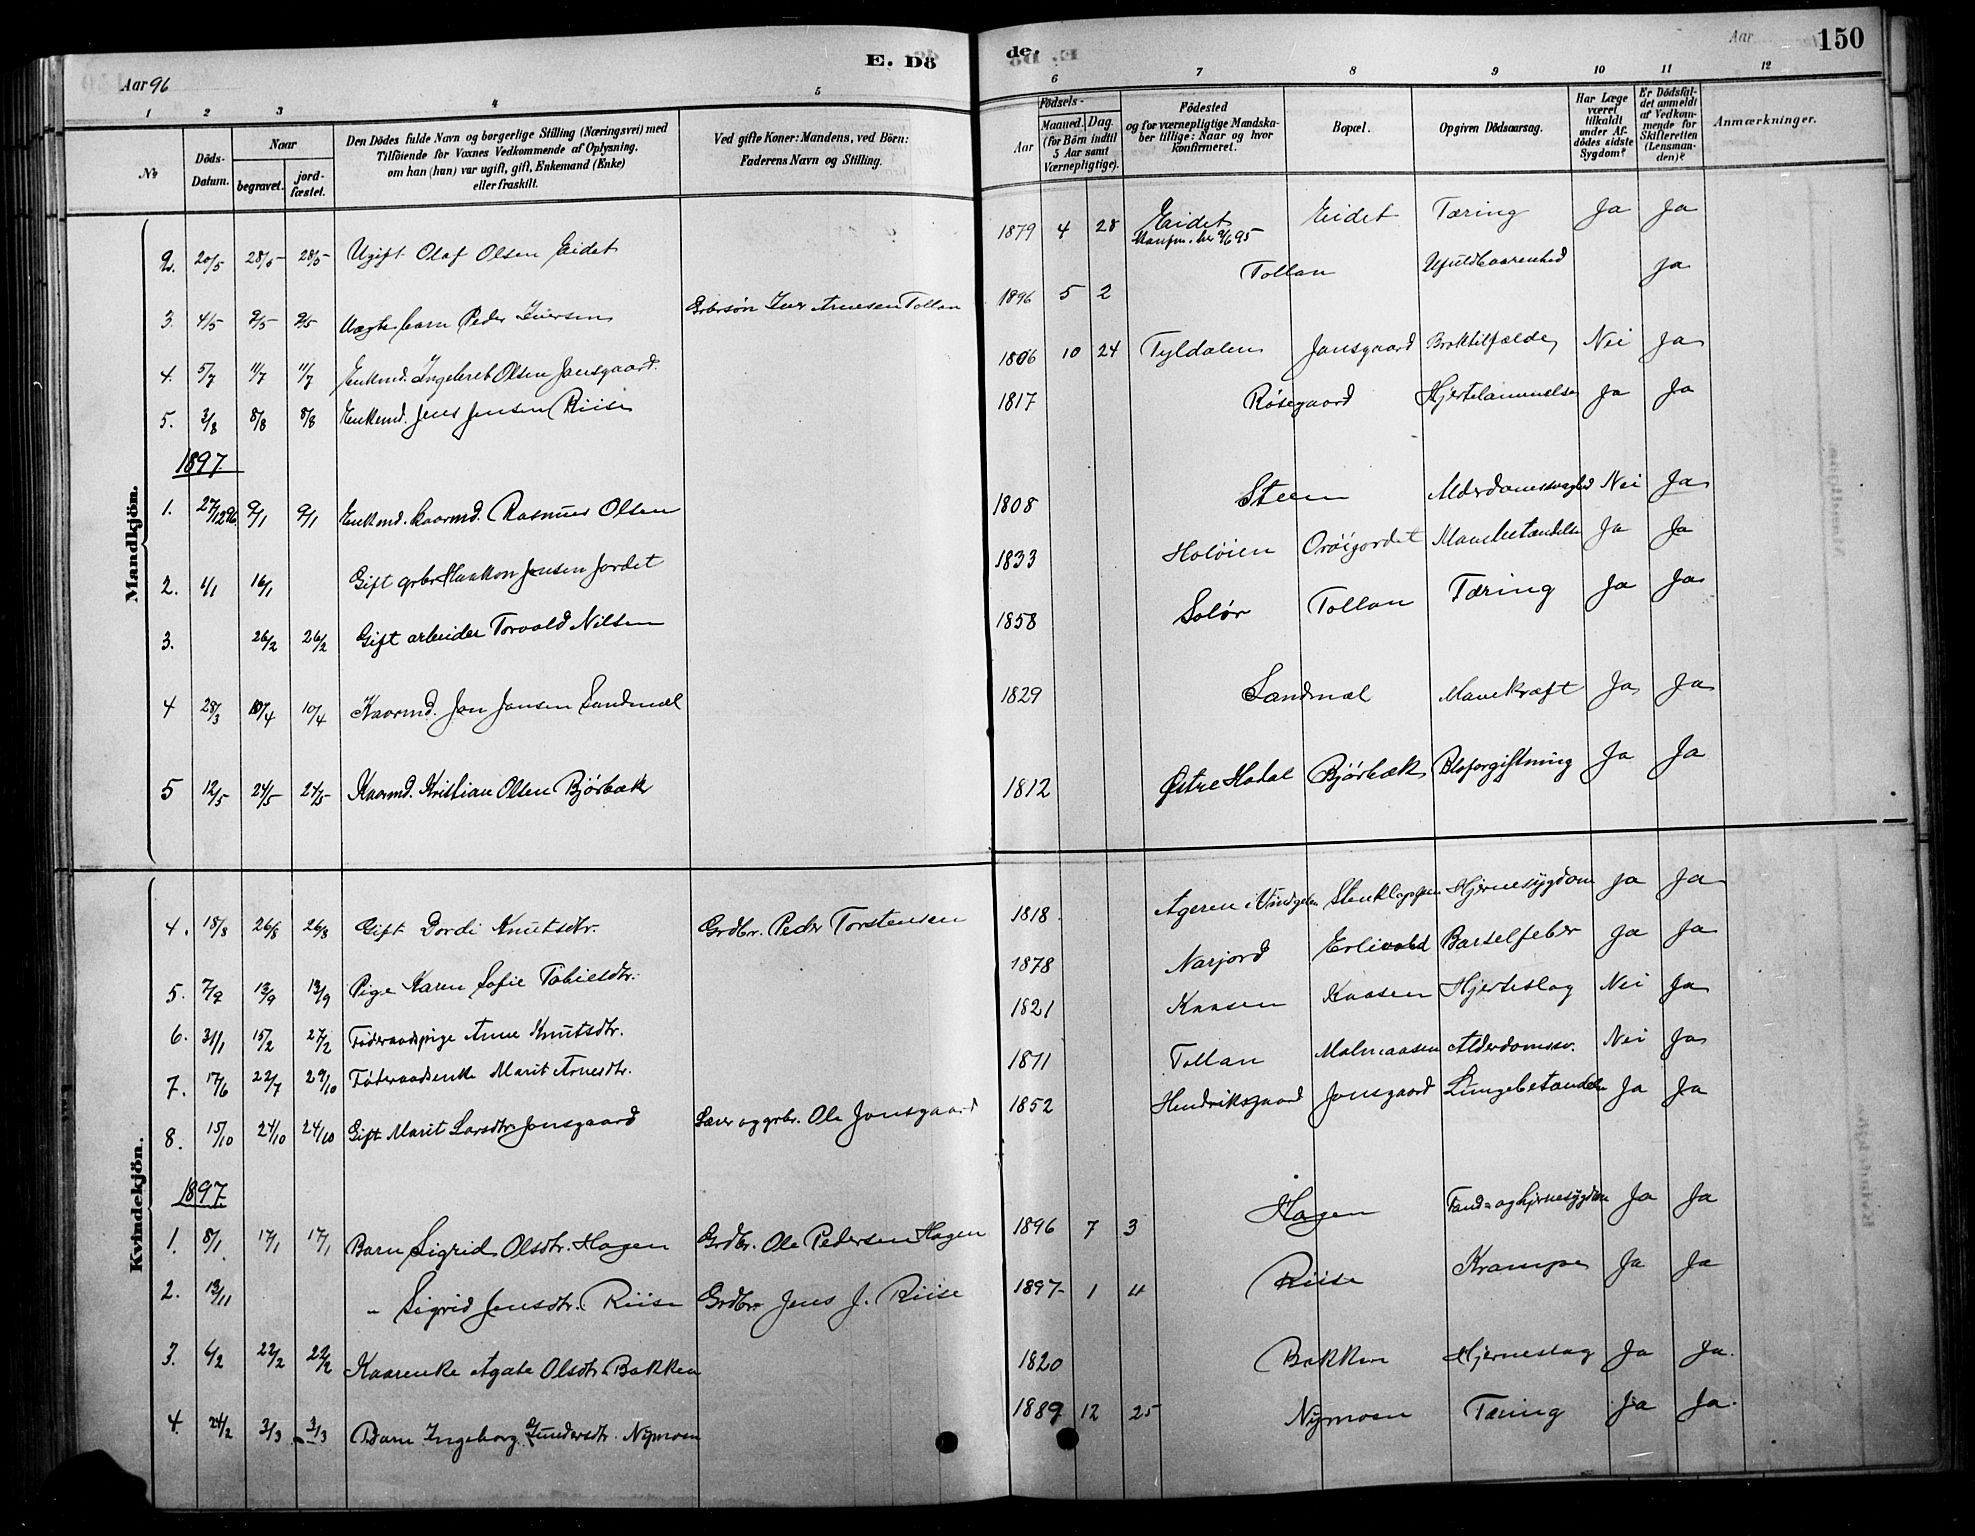 Aar 96
E. Dö
de.
Aar
150
1 2 3 4 5 6 7 8 9 10 11 12
No
Döds-Datum.
Naar
begravet.
jord-fæstet.
Den Dödes fulde Navn og borgerlige Stilling (Næringsvei) med
Tilföiende for Voxnes Vedkommende af Oplysning,
om han (hun) var ugift, gift, Enkemand (Enke)
eller fraskilt.
Ved gifte Koner: Mandens, ved Börn:
Faderens Navn og Stilling.
Födsels-
Aar
Maaned.
Dag.
(for Börn indtil
5 Aar samt
Værnepligtige).
Födested
og for værnepligtige Mandska-
ber tillige: Naar og hvor
konfirmeret.
Bopæl.
Opgiven Dödsaarsag.
Har Læge
været
tilkaldt
under Af-
dödes sidste
Sygdom?
Er Dödsfal-
det anmeldt
af Vedkom-
mende for
Skifteretten
(Lensman-
den)?
Anmærkninger.
Mandkjön.
2. 20/5 28/5 28/5 Ugift Olaf Olsen Eidet 1879 4 28 Eidet Eidet Tæring Ja Ja
3. 4/5 9/5 9/5 Uægte barn Peder Iversen Grbrsøn Iver Arnesen Tollan 1896 5 2 Tollan Ufuldbaarenhed Ja
4. 5/7 11/7 11/7 Enkmd. Ingebret Olsen Jonsgaard 1806 10 24 Tyldalen Jonsgaard Broktilfælde Nei Ja
5. 3/8 8/8 8/8 Enkemd. Jens Jensen Riise 1817 Røsegaard Hjertelammelse Ja Ja
1897
1. 27/12 96 9/1 9/1 Enkmd. kaarmd. Rasmus Olsen 1808 Steen Alderdomssvaghed Nei Ja
2. 6/1 16/1 Gift grbr Haakon Jonsen Jordet 1833 Holøien Orøsjordet Mavebetændelse Ja Ja
3. 26/2 26/2 Gift arbeider Torvald Nilsen 1858 Solør Tollan Tæring Ja Ja
4 28/3 10/4 10/4 Kaarmd. Jon Jonsen Sandmæl 1829 Sandmæl Mavekræft Ja Ja
5 12/5 24/5 24/5 Kaarmd. Kristian Olsen Bjørbæk 1812 Østre Hotal Bjørbæk Bloforgiftning Ja Ja
Kvindekjön.
4. 18/8 26/8 26/8 Gift Dordi Knutsdtr. Grdbr. Peder Torstensen 1818. Ageren i Vingelen Stenkloppen Hjernesygdom Ja Ja
5. 7/9 13/9 13/9 Pige Karen Sofie Tobiesdtr. 1878 Narjord Erlivold Barselfeber Ja Ja
6. 31/1 15/2 27/2 Føderaadspige Anne Knutsdtr. 1821 Kaasen Kaasen Hjerteslag Nei Ja
7. 17/6 22/7 29/10 Føderaadsenke Marit Arnesdtr. 1811 Tollan Malmaasen Alderdomssv. Nei Ja
8. 15/10 24/10 24/10 Gift Marit Larsdtr. Jonsgaard Lærer og grbr. Ole Jonsgaard 1852 Hendriksgaard Jonsgaard Lungebetændelse Ja Ja
1897
1. 8/1 17/1 17/1 Barn Sigrid Olsdtr. Hagen Grdbr. Ole Pedersen Hagen 1896 7 3 Hagen Tand= og hjernesygdom Ja Ja
2. 13/11 " Sigrid Jensdtr. Riise Grdbr. Jens J. Riise 1897 1 4 Riise Krampe Ja Ja
3. 6/2 22/2 22/2 Kaarenke Agate Olsdtr Bakken 1820 Bakken Hjerneslag Ja Ja.
4. 24/2 3/3 3/3 Barn Ingeborg Gundersdtr. Nymoen 1889 12 25 Nymoen Tæring Ja Ja.